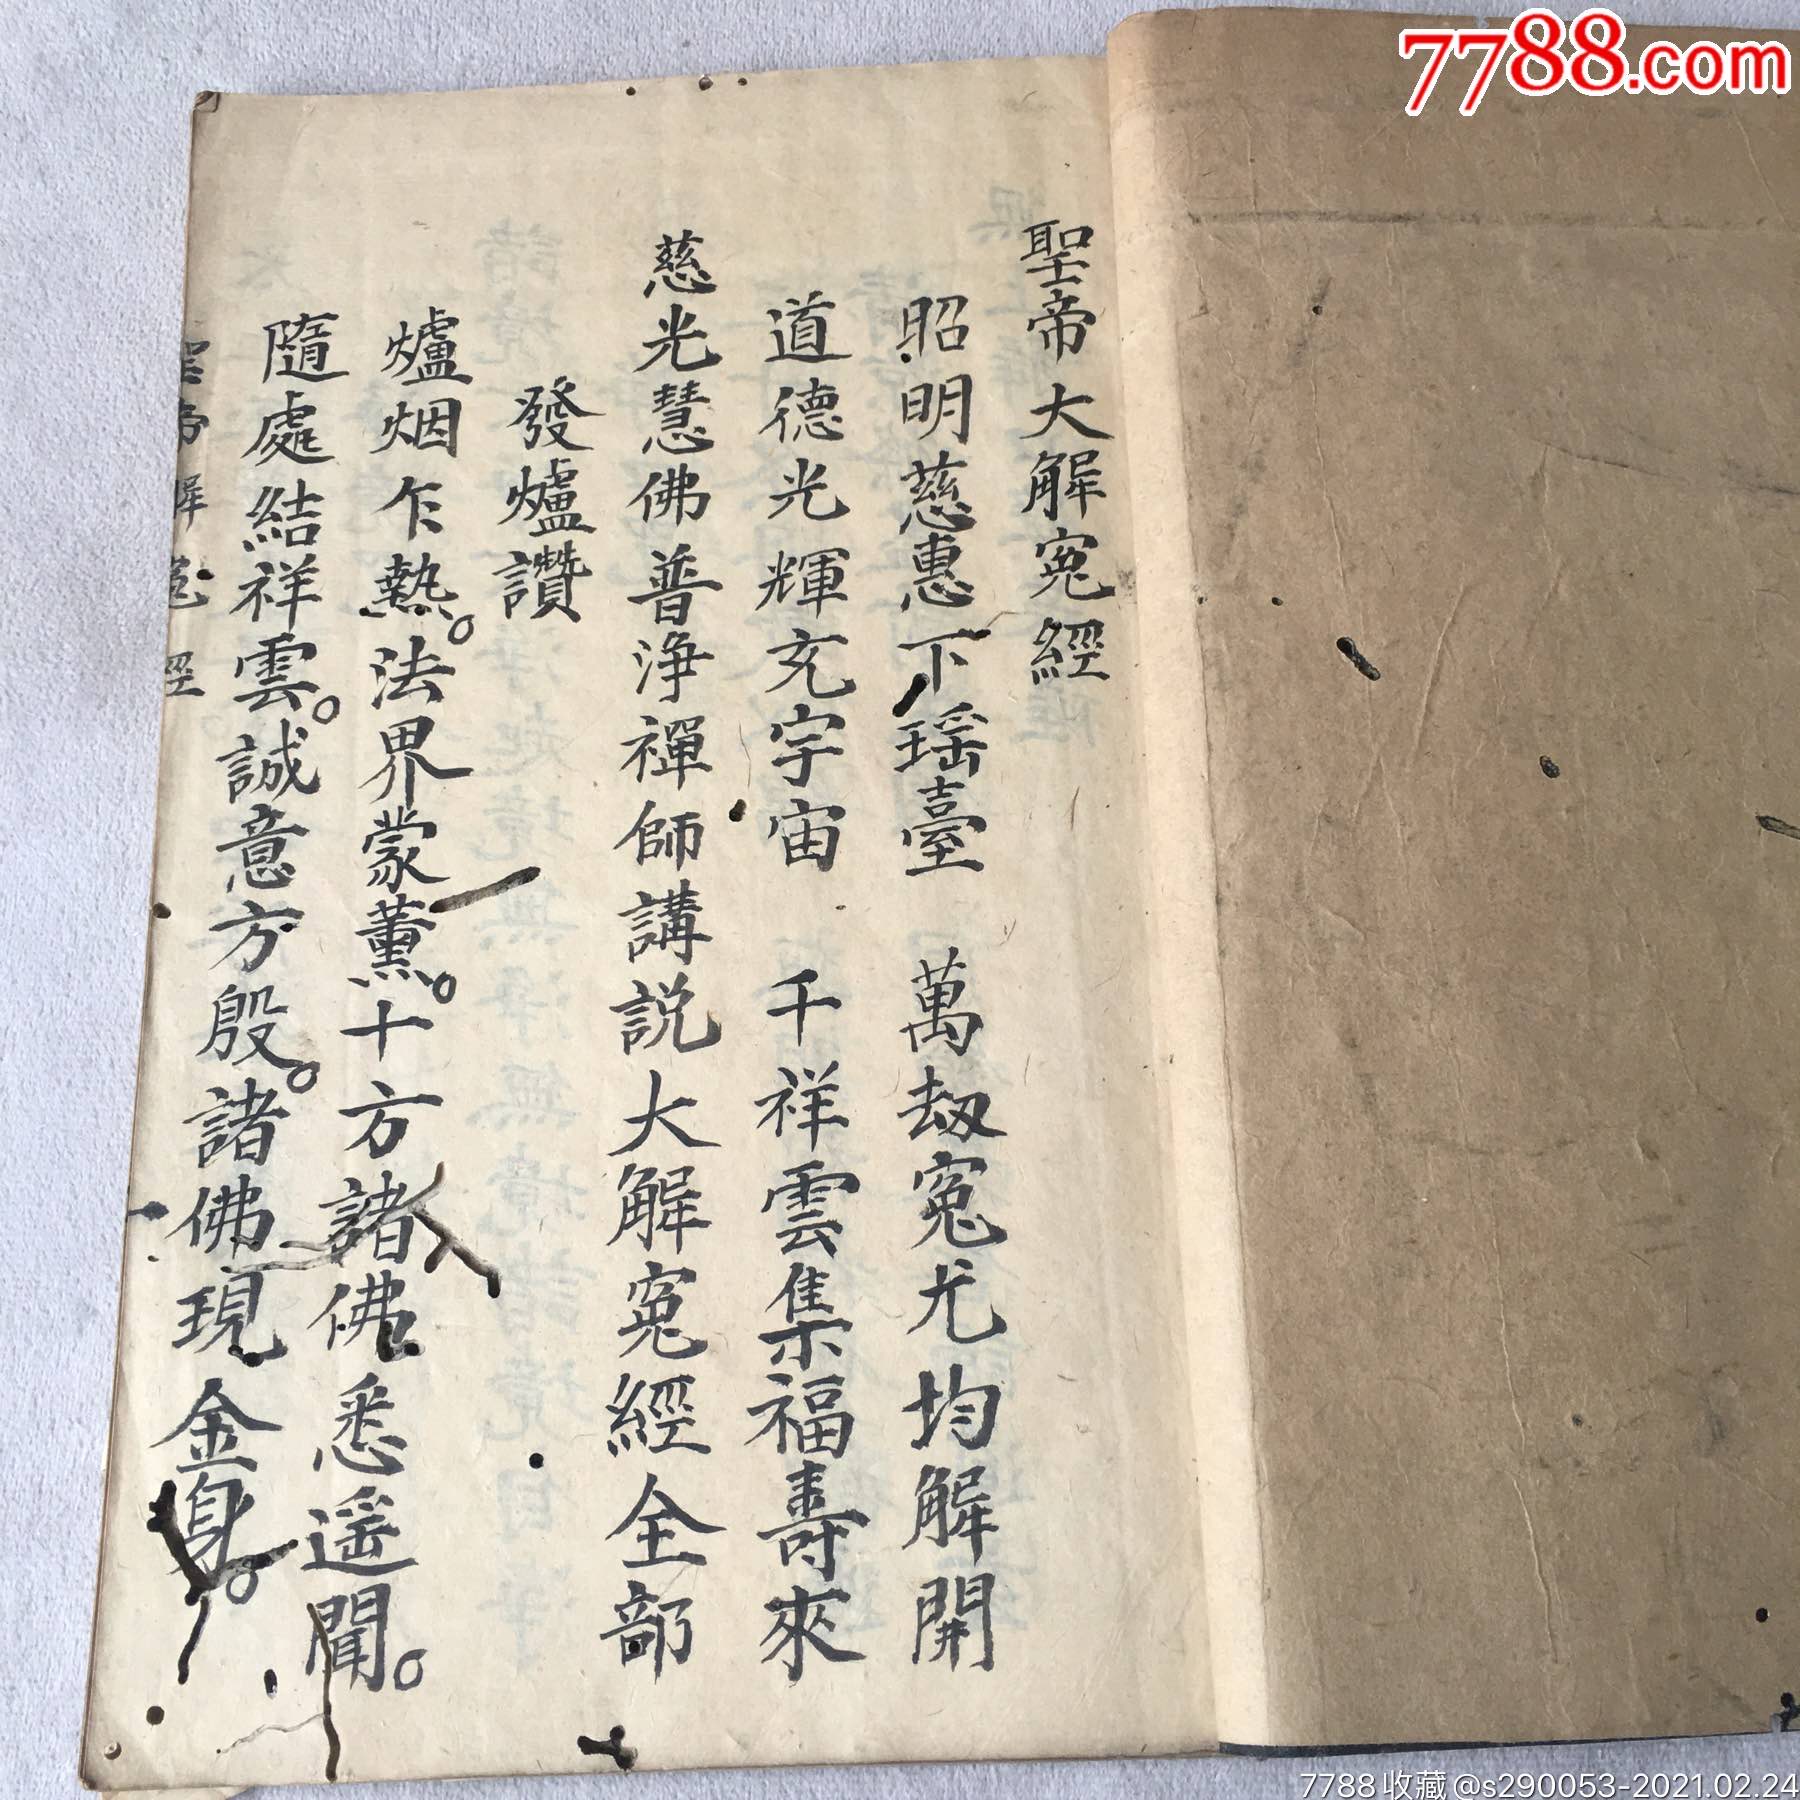 聖帝大解寃經
昭明慈惠下瑶臺 萬劫寃尤均解開
道德光輝充宇宙 千祥雲集福壽來
慈光慧佛普淨禪師講説大解寃經全部
發爐讚
爐烟乍熱。法界蒙薰。十方諸佛悉遥聞。
隨處結祥雲。誠意方殷。諸佛現金身。
聖帝解寃經
7788.com
7788收藏@s290053-2021.02.24